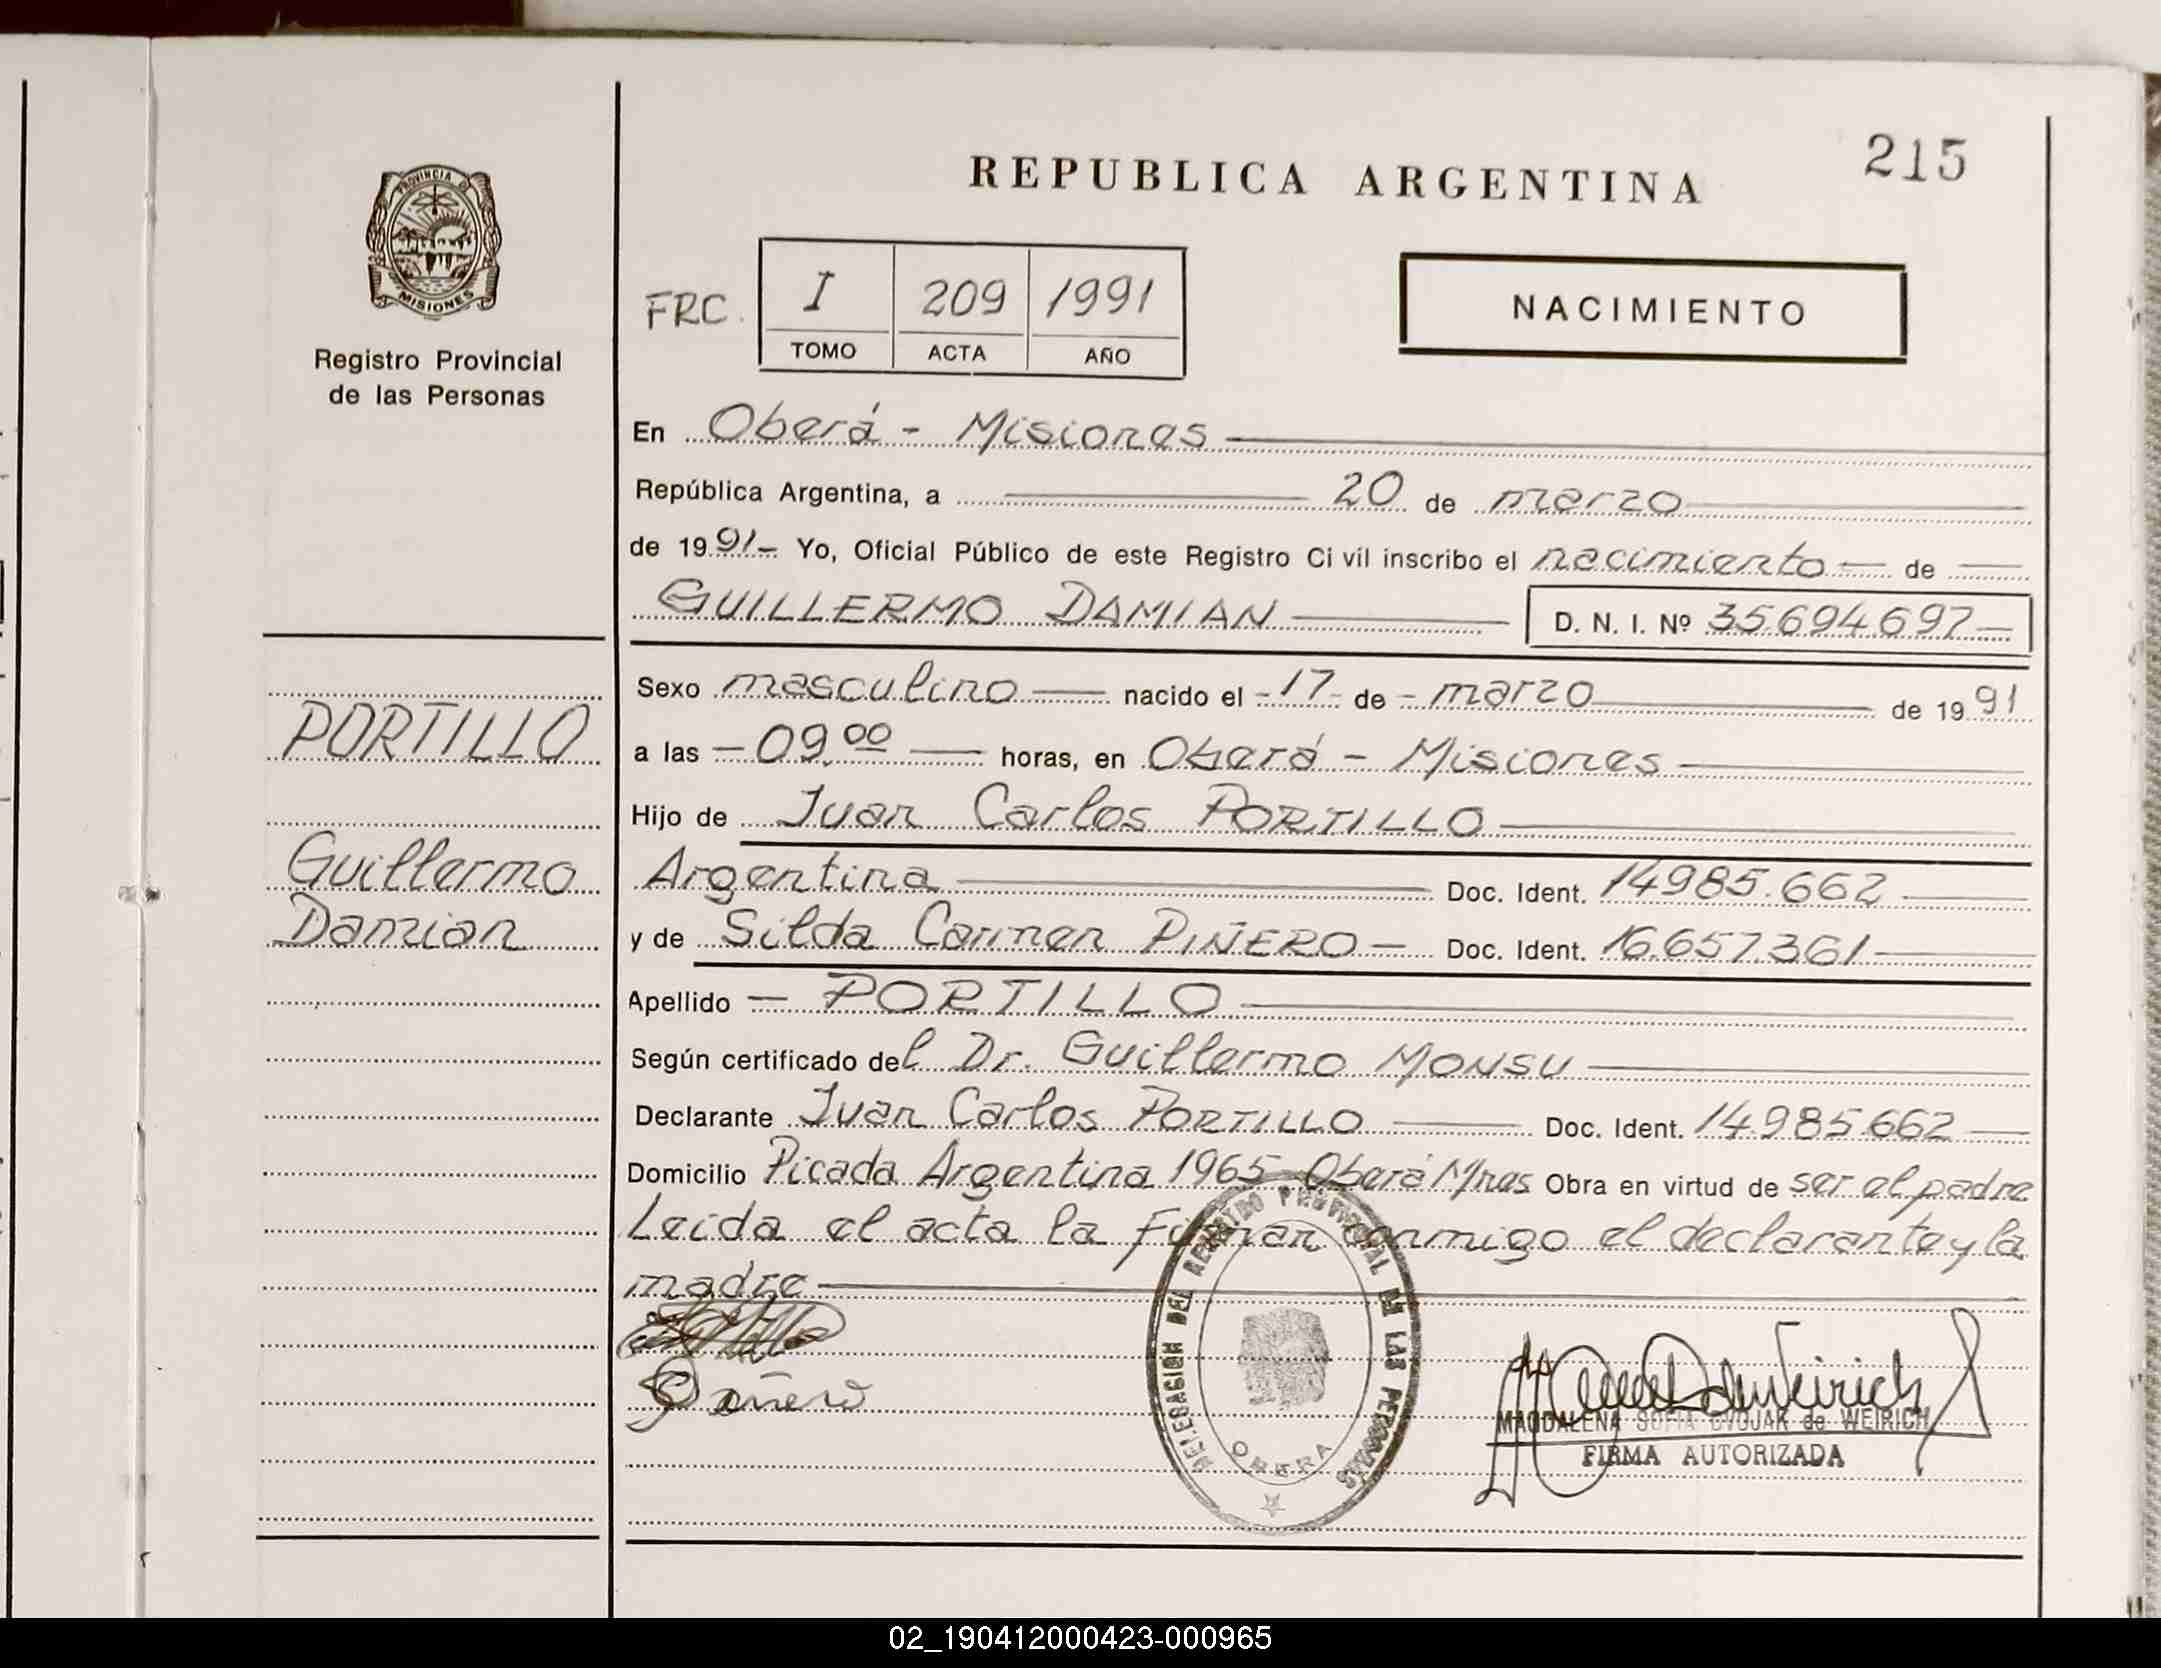 REPUBLICA ARGENTINA
215
PROVINCIA DE
MISIONES
Registro Provincial
de las Personas
FRC.
I 209 1991
TOMO ACTA AÑO
NACIMIENTO
En Oberá - Misiones
República Argentina, a 20 de marzo
de 1991- Yo, Oficial Público de este Registro Civil inscribo el nacimiento de
GUILLERMO DAMIAN D. N. I. Nº 35.694.697
Sexo masculino nacido el -17- de - marzo de 1991
a las - 09.00 horas, en Oberá - Misiones
Hijo de Juan Carlos PORTILLO
Argentina Doc. Ident. 14.985.662
y de Silda Carmen PIÑERO - Doc. Ident. 16.657.361
Apellido - PORTILLO
Según certificado del Dr. Guillermo MONSU
Declarante Juan Carlos PORTILLO Doc. Ident. 14.985.662
Domicilio Picada Argentina 1965 Oberá Mnes Obra en virtud de ser el padre
Leida el acta la firman conmigo el declarante y la
madre
PORTILLO
Guillermo
Damian
DELEGACION DEL REGISTRO PROVINCIAL DE LAS PERSONAS
OBERA
MAGDALENA SOFIA DVOJAK de WEIRICH
FIRMA AUTORIZADA
02_190412000423-000965